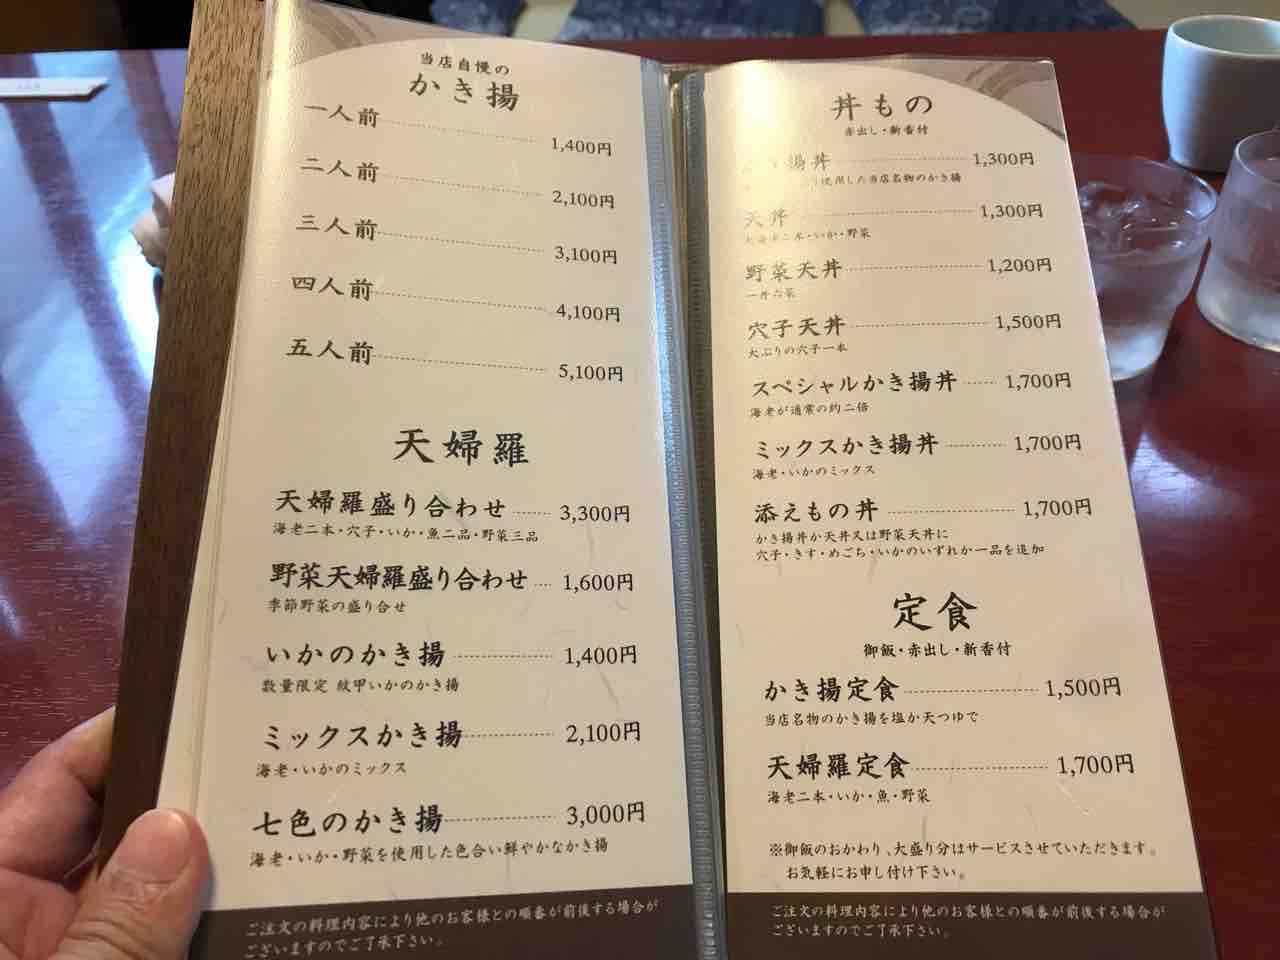 当店自慢の
かき揚
一人前 1,400円
二人前 2,100円
三人前 3,100円
四人前 4,100円
五人前 5,100円
天婦羅
天婦羅盛り合わせ 3,300円
海老二本・穴子・いか・魚二品・野菜三品
野菜天婦羅盛り合わせ 1,600円
季節野菜の盛り合せ
いかのかき揚 1,400円
数量限定 紋甲いかのかき揚
ミックスかき揚 2,100円
海老・いかのミックス
七色のかき揚 3,000円
海老・いか・野菜を使用した色合い鮮やかなかき揚
ご注文の料理内容により他のお客様との順番が前後する場合が
ございますのでご了承下さい。
丼もの
赤出し・新香付
かき揚丼 1,300円
使用した当店名物のかき揚
天丼 1,300円
二本・いか・野菜
野菜天丼 1,200円
一丼六菜
穴子天丼 1,500円
大ぶりの穴子一本
スペシャルかき揚丼 1,700円
海老が通常の約二倍
ミックスかき揚丼 1,700円
海老・いかのミックス
添えもの丼 1,700円
かき揚丼か天丼又は野菜天丼に
穴子・きす・めごち・いかのいずれか一品を追加
定食
御飯・赤出し・新香付
かき揚定食 1,500円
当店名物のかき揚を塩か天つゆで
天婦羅定食 1,700円
海老二本・いか・魚・野菜
※御飯のおかわり、大盛り分はサービスさせていただきます。
お気軽にお申し付け下さい。
ご注文の料理内容により他のお客様との順番が前後する場合が
ございますのでご了承下さい。